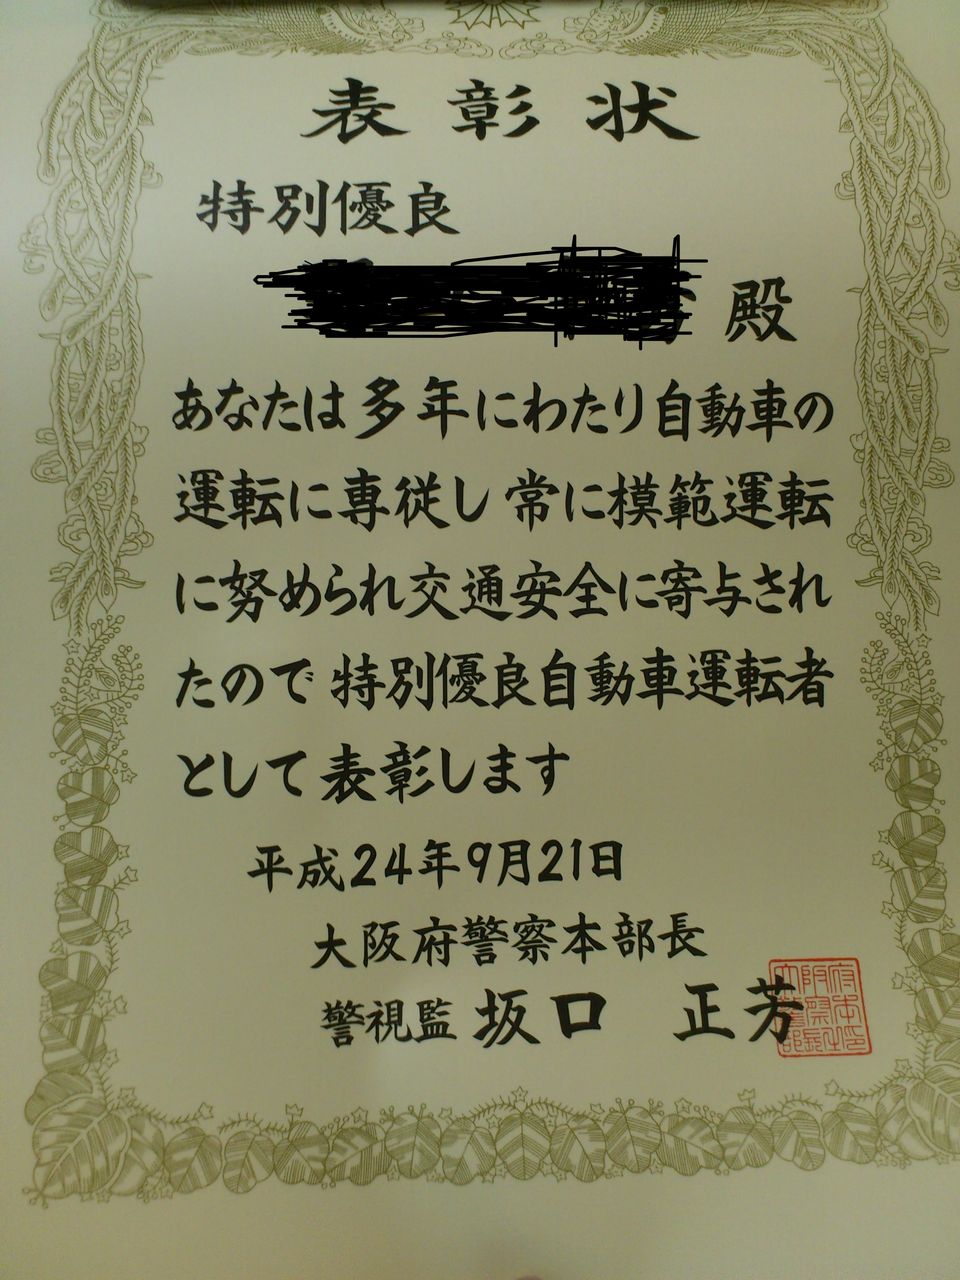 表彰状
特別優良
殿
あなたは多年にわたり自動車の
運転に専従し常に模範運転
に努められ交通安全に寄与され
たので特別優良自動車運転者
として表彰します
平成24年9月21日
大阪府警察本部長
警視監 坂口 正芳